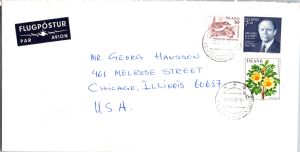 FLUGPÓSTUR
PAR AVION
ÍSLAND
ÍSLAND
MR. GEORG HANSSON
461 MELROSE STREET
CHICAGO, ILLINOIS 60657
U.S.A.
ÍSLAND